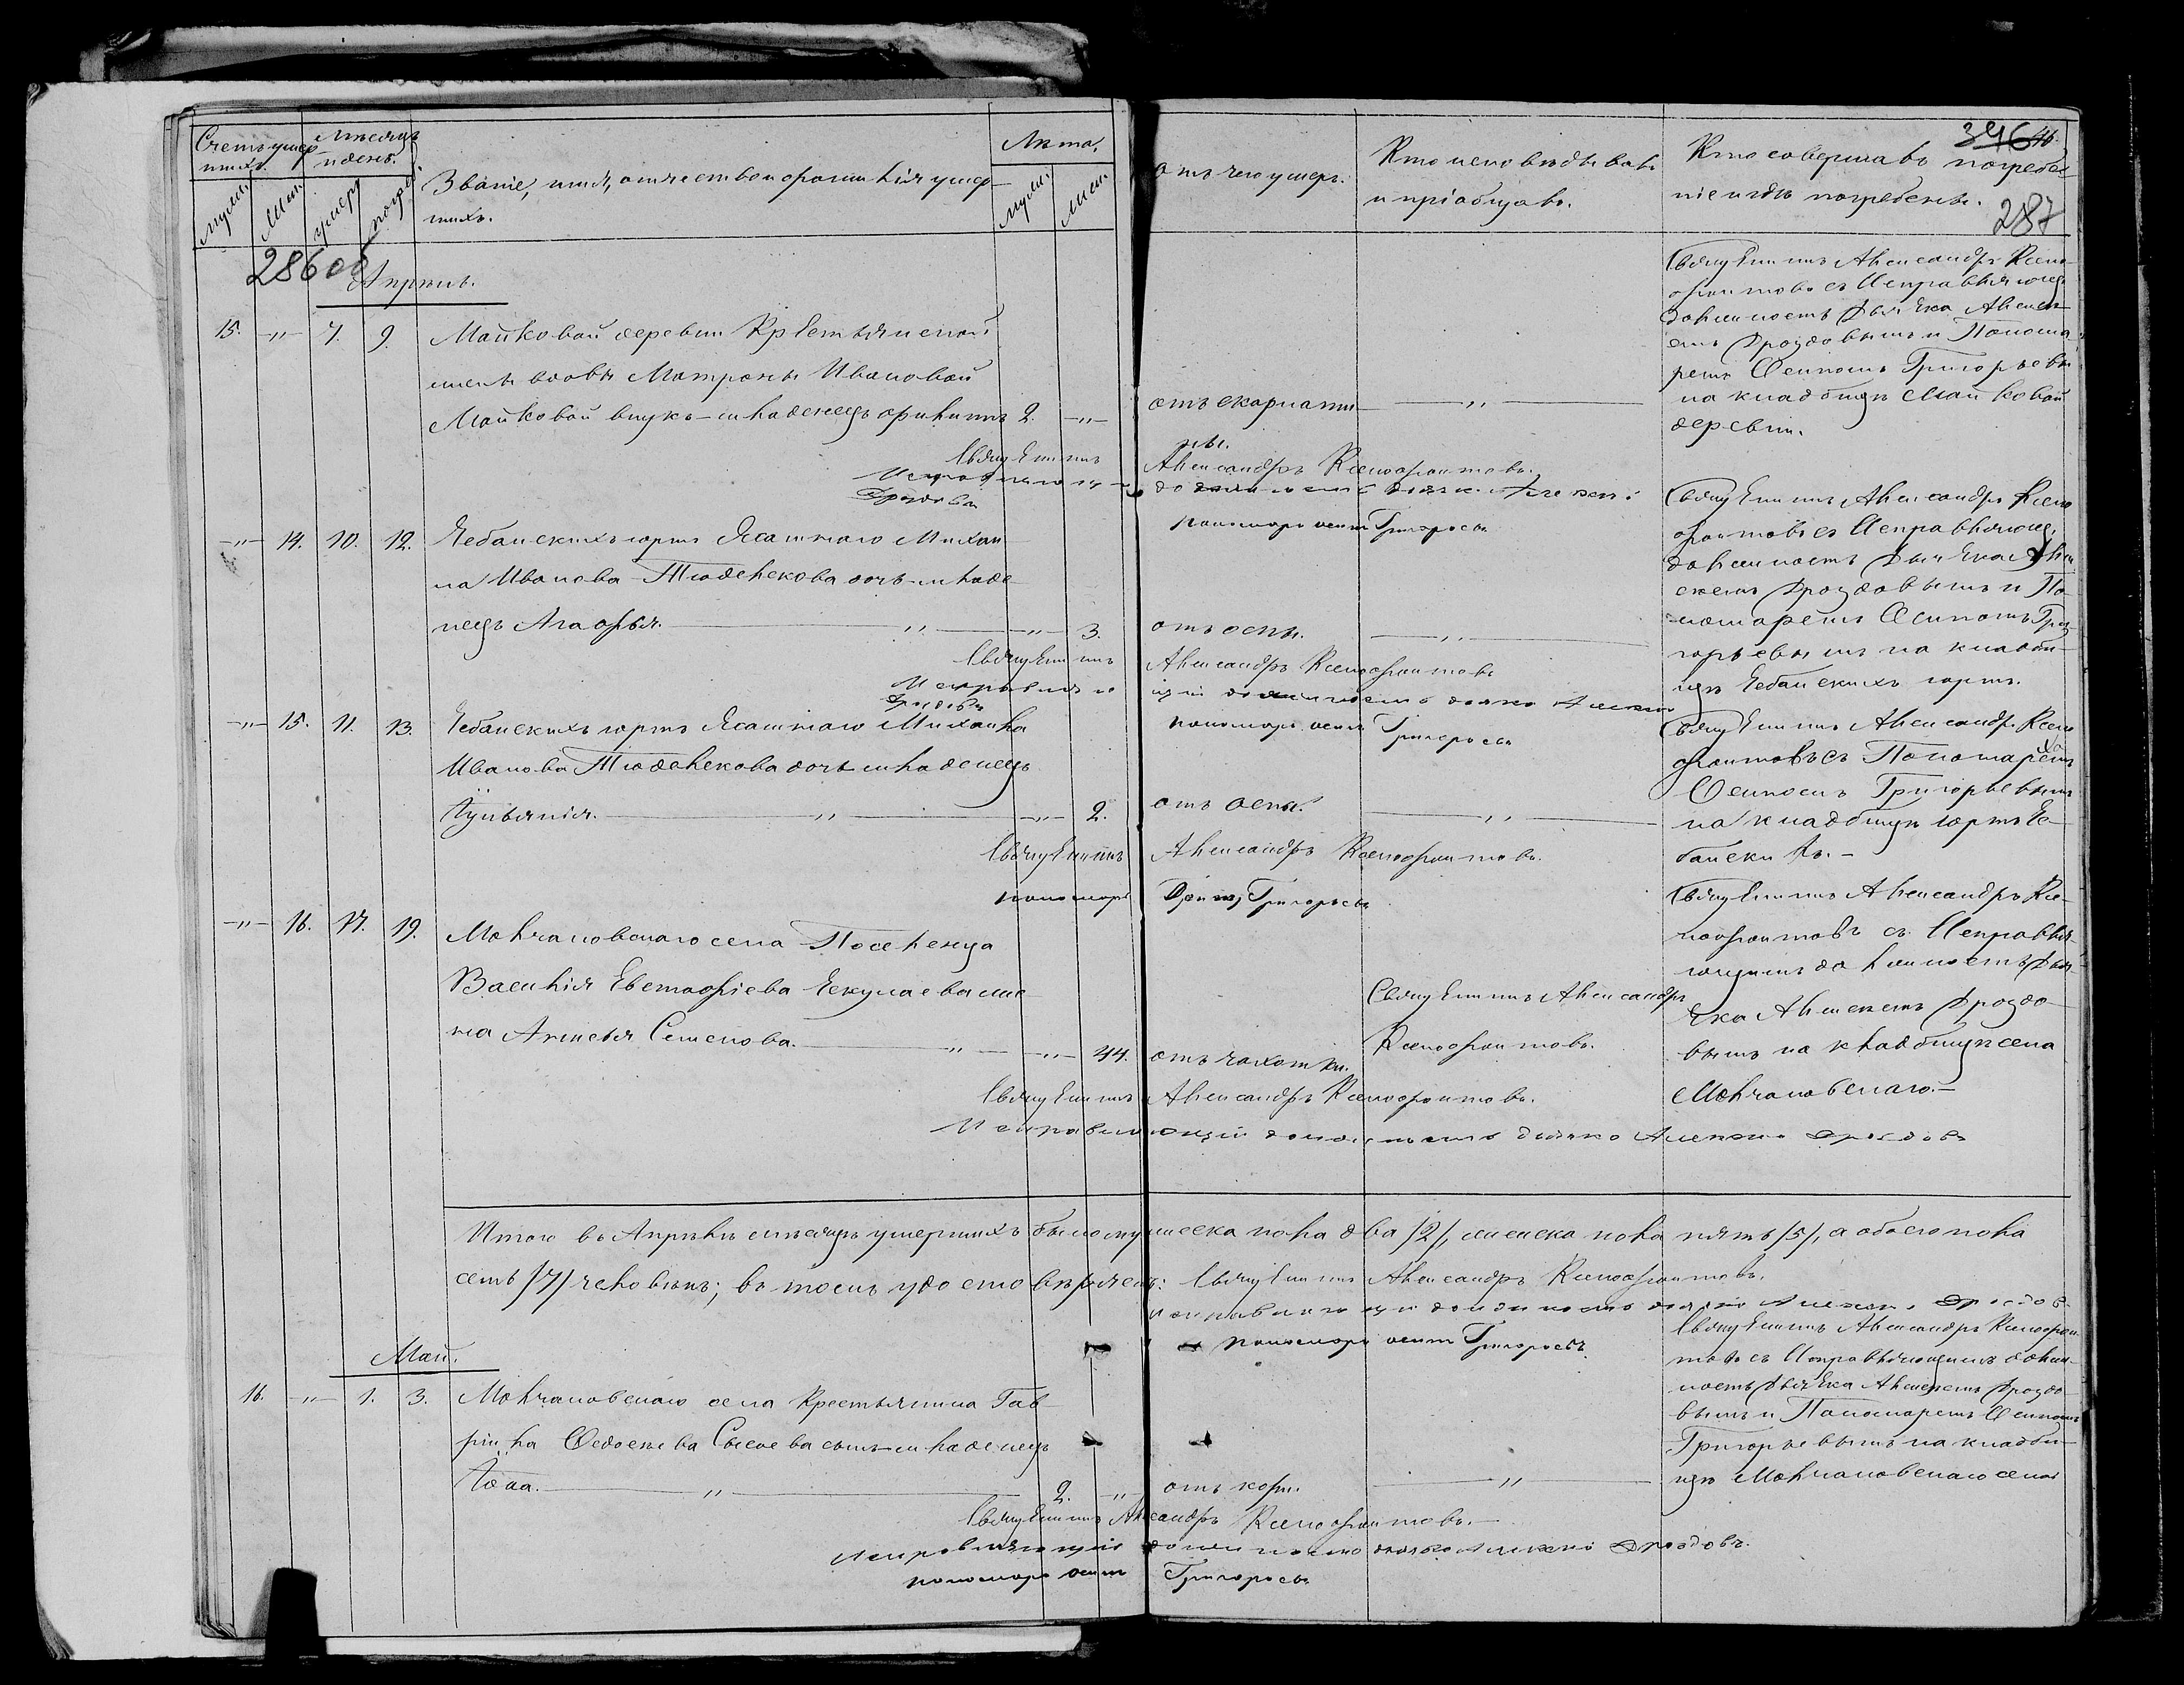 Счетъ умер
шихъ.
Мѣсяцъ
и день.
Званіе, имя, отчество и фамилія умер-
шихъ.
Лѣта.
отъ чего умеръ.
Кто исповѣдывалъ
и пріобщалъ.
Кто совершалъ погребе-
ніе и гдѣ погребены.
муж.
Жен.
умеръ
погреб.
муж.
Жен.
346
287
286 об
Апрѣль.
15. -"- 7. 9. Майковой деревни Крестьянской
жены вдовы Матроны Ивановой
Майковой внукъ-младенецъ Филиппъ 2. -"- отъ скарлати- -"-
ны.
Священникъ Александръ Ксено-
фонтовъ съ Исправляющ.
должность Дьячка Алексѣ-
емъ Дроздовымъ и Понома-
ремъ Осипомъ Григорьевы
на кладбищѣ Майковой
деревни.
Священникъ Александръ Ксенофонтовъ.
Исправляющій должность дьячка Алексей
Дроздовъ
пономарь осипъ Григоревъ
-"- 14. 10. 12. Чебанскихъ юртъ Ясашнаго Михаи-
ла Иванова Тюделекова дочь-младе-
нецъ Агафья. -"- -"- 3. отъ оспы. -"-
Священникъ Александръ Ксено
фонтовъ съ Исправляющ.
должность Дьячка Але-
ксеемъ Дроздовымъ и По-
номаремъ Осипомъ Гри-
горьевымъ на кладби-
щѣ Чебанскихъ юртъ.
Священникъ Александръ Ксенофонтовъ
Исправляю щій должность дьячка Алексей
Дроздовъ
пономарь осипъ Григоревъ
-"- 15. 11. 13. Чебанскихъ юртъ Ясашнаго Михаила
Иванова Тюделекова дочь-младенецъ
Іуліянія. -"- -"- 2. отъ оспы. -"-
Священникъ Александръ Ксено
фонтовъ съ Пономаремъ
Осипомъ Григорьевымъ
на кладбищѣ юртъ Че-
банскихъ.-
Священникъ Александръ Ксенофонтовъ.
пономарь Осипъ Григорьевъ
-"- 16. 17. 19. Молчановскаго села Поселенца
Василія Евстафіева Чекулаева же-
на Аксинья Семенова. -"- -"- 44. отъ чахотки.
Священникъ Александръ
Ксенофонтовъ.
Священникъ Александръ Ксе-
нофонтовъ съ Исправля-
ющимъ должность Дья-
чка Алексеемъ Дроздо-
вымъ на кладбищѣ села
Молчановскаго.-
Священникъ Александръ Ксенофонтовъ.
Исправляющій должность дьячка Алексей Дроздовъ
Итого въ Апрѣлѣ мѣсяцѣ умершихъ было мужеска пола два /2/, женска пола пять /5/, а обоего пола
семь /7/ человѣкъ; въ томъ удостовѣряемъ: Священникъ Александръ Ксенофонтовъ.
исправляющи должность дьячка Алексей Дроздовъ
пономарь осипъ Григоревъ
Май.
16. -"- 1. 3. Молчановскаго села Крестьянина Гав-
ріила Федосеева Сысоева сынъ-младенецъ
Іова. -"- 2. -"- отъ кори. -"-
Священникъ Александръ Ксенофон
товъ съ Исправляющимъ долж-
ность Дьячка Алексеемъ Дроздо-
вымъ и Пономаремъ Осипомъ
Григорьевымъ на кладби-
щѣ Молчановскаго села
Священникъ Александръ Ксенофонтовъ.-
исправляющій должность дьячка Алексей Дроздовъ.
пономарь осипъ Григоревъ